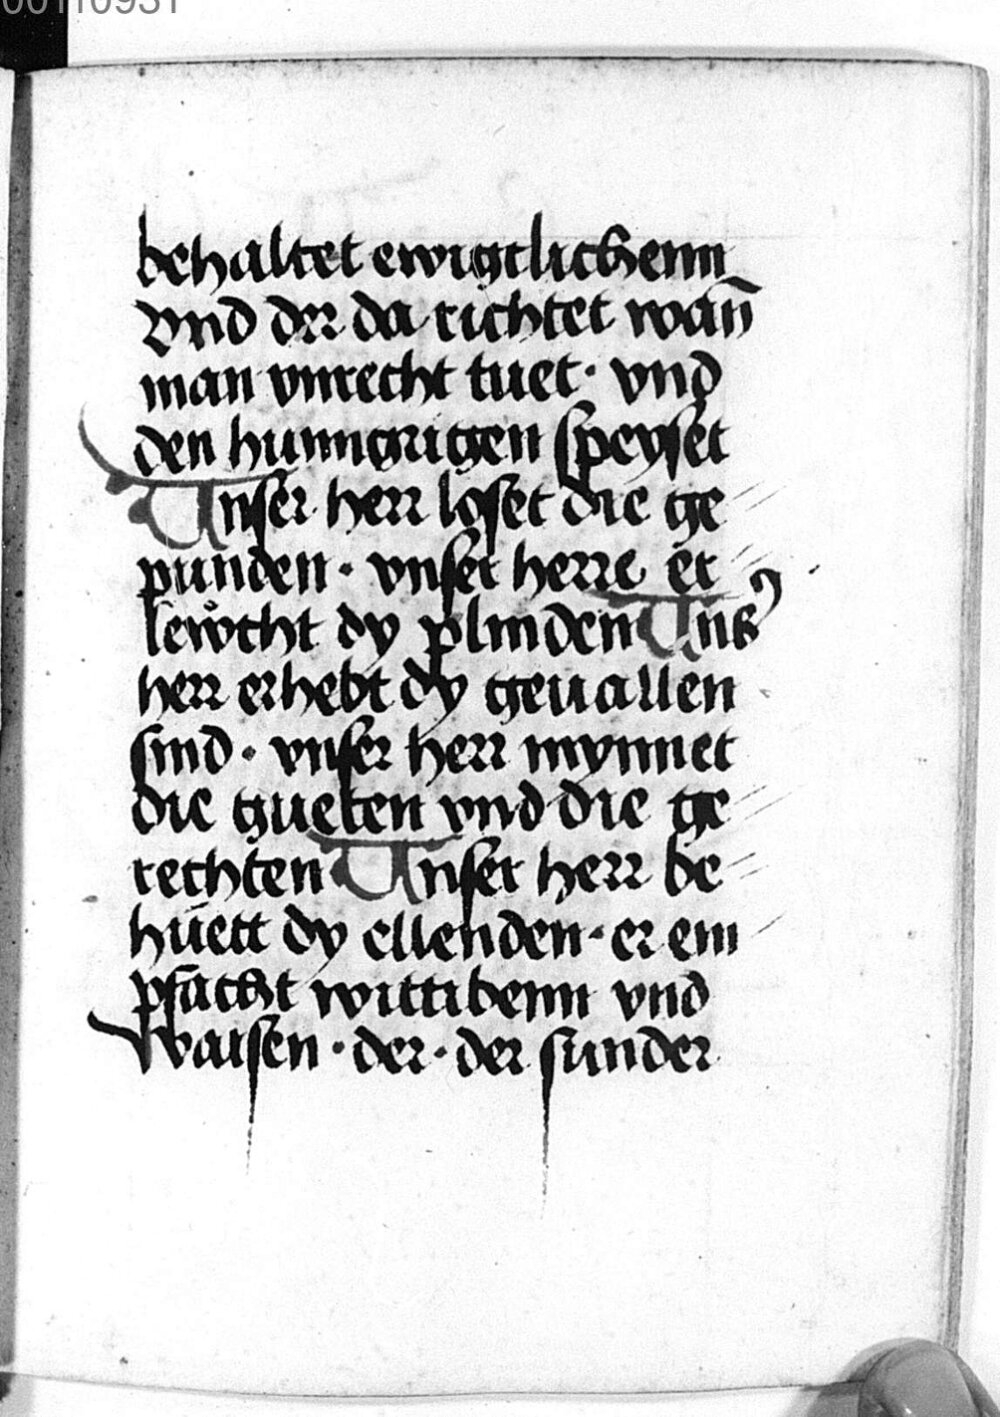 00110931
behaltet ewigclichenn
vnd der da richtet wan̄
man vnrecht tuet · vnd
den hunngrigen speyset
Vnser herr loset die ge
punden · vnser herre er
lewͦcht dy plinden Vnsʾ
herr erhebt dy geuallen
sind · vnser herr mynnet
die gueten vnd die ge
rechten Vnser herr be
hüett dy ellenden · er em
pfacht wittibenn vnd
Waisen · der · der sunder